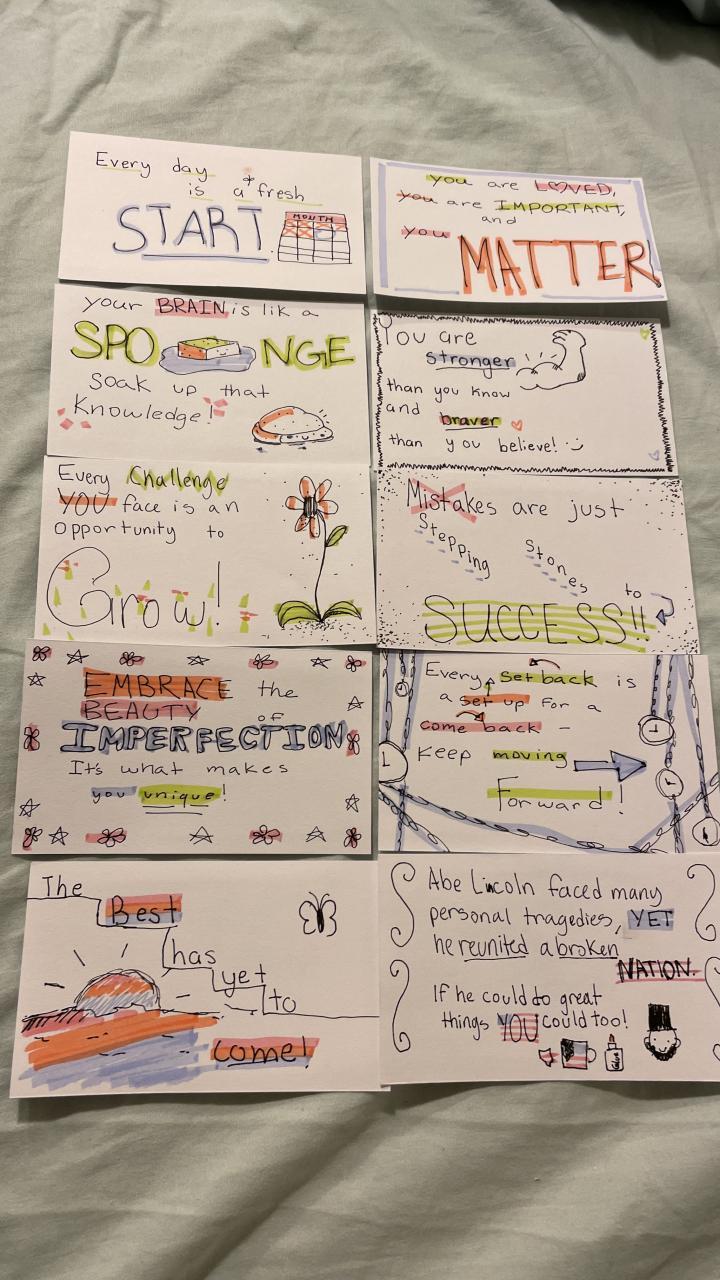 Every day
is a fresh
START
MONTH
you are LOVED,
you are IMPORTANT,
and
you
MATTER
your BRAIN is lik a
SPONGE
soak up that
Knowledge!
You are
stronger
than you know
and
braver
than you believe! :)
Every Challenge
YOU face is an
opportunity to
Grow!
Mistakes are just
Stepping Stones
to
SUCCESS!!
EMBRACE the
BEAUTY of
IMPERFECTION
It's what makes
you unique!
Every set back is
a set up for a
come back -
Keep moving
Forward!
The
Best
has
yet
to
come!
Abe Lincoln faced many
personal tragedies, YET
he reunited a broken
NATION.
If he could do great
things YOU could too!
Glue